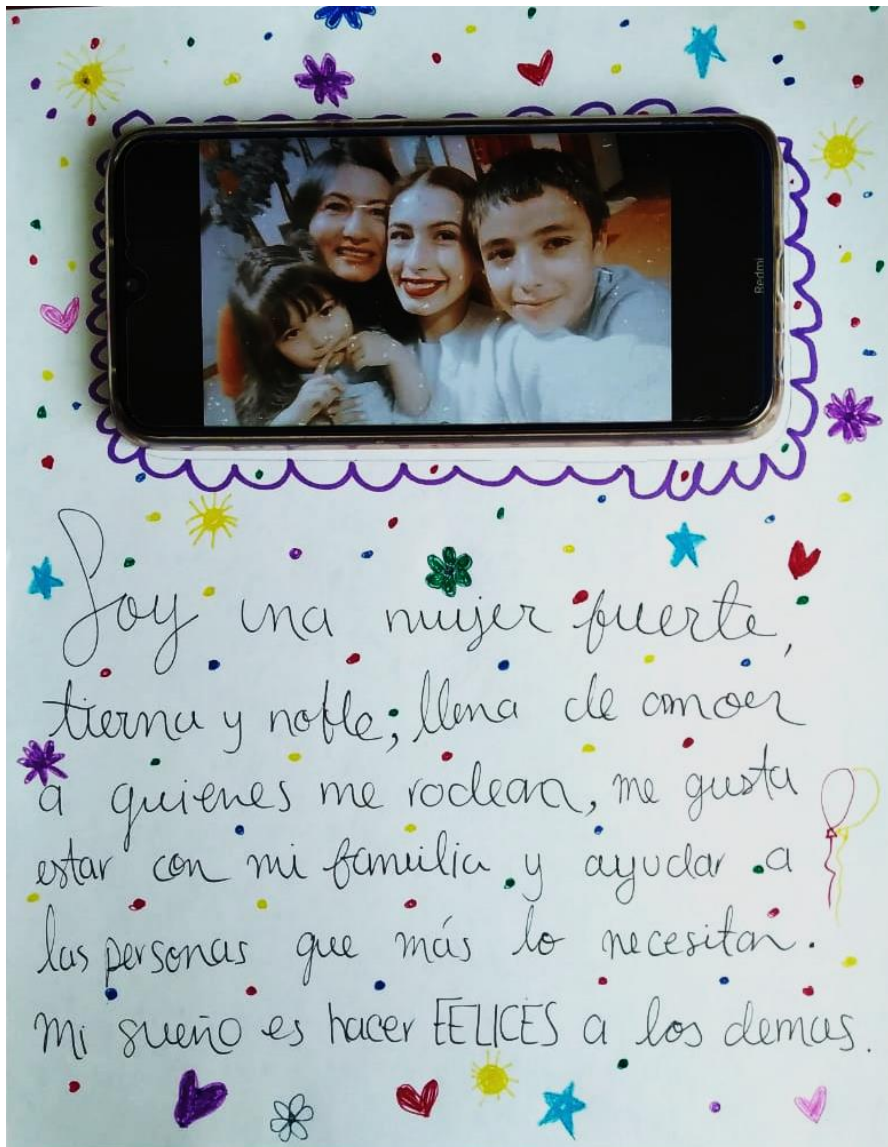 Redmi
Soy una mujer fuerte,
tierna y noble; llena de amor
a quienes me rodean, me gusta
estar con mi familia y ayudar a
las personas que más lo necesitan.
Mi sueño es hacer FELICES a los demas.